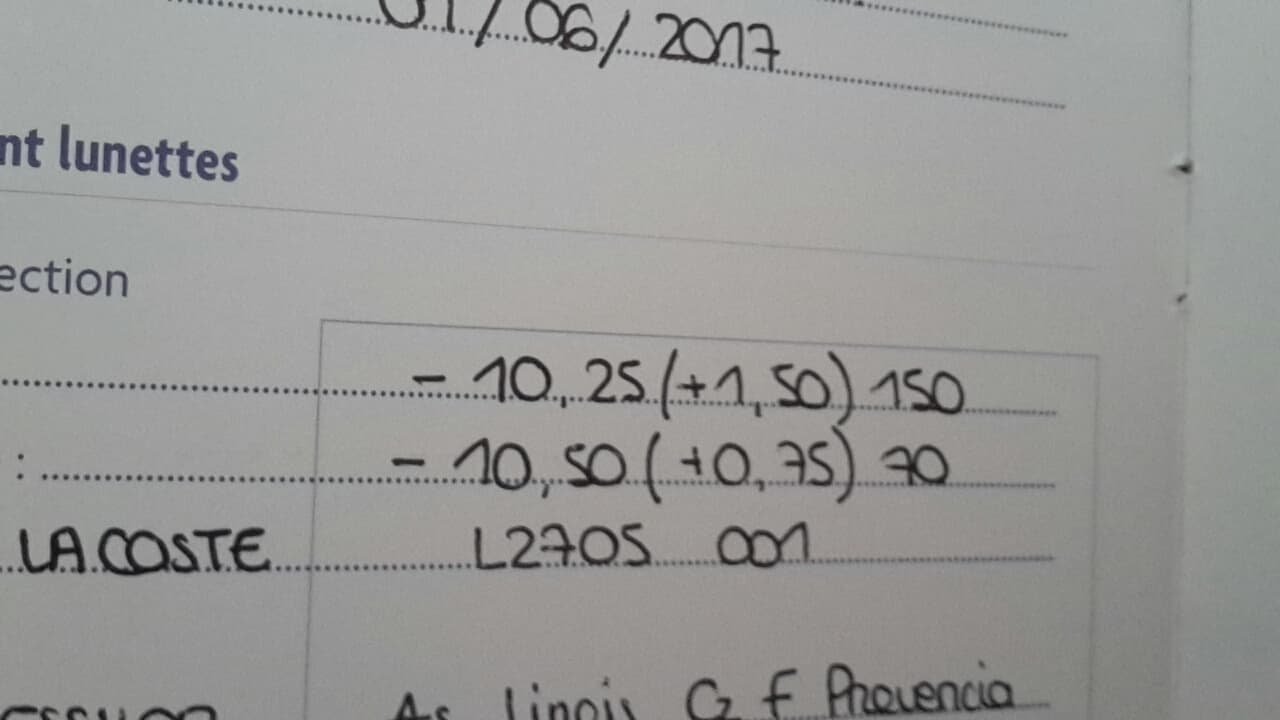 01/06/2017
nt lunettes
ection
- 10,25 (+1,50) 150
: - 10,50 (+0,75) 70
LACOSTE L2705 001
As Linois G F Prevencia